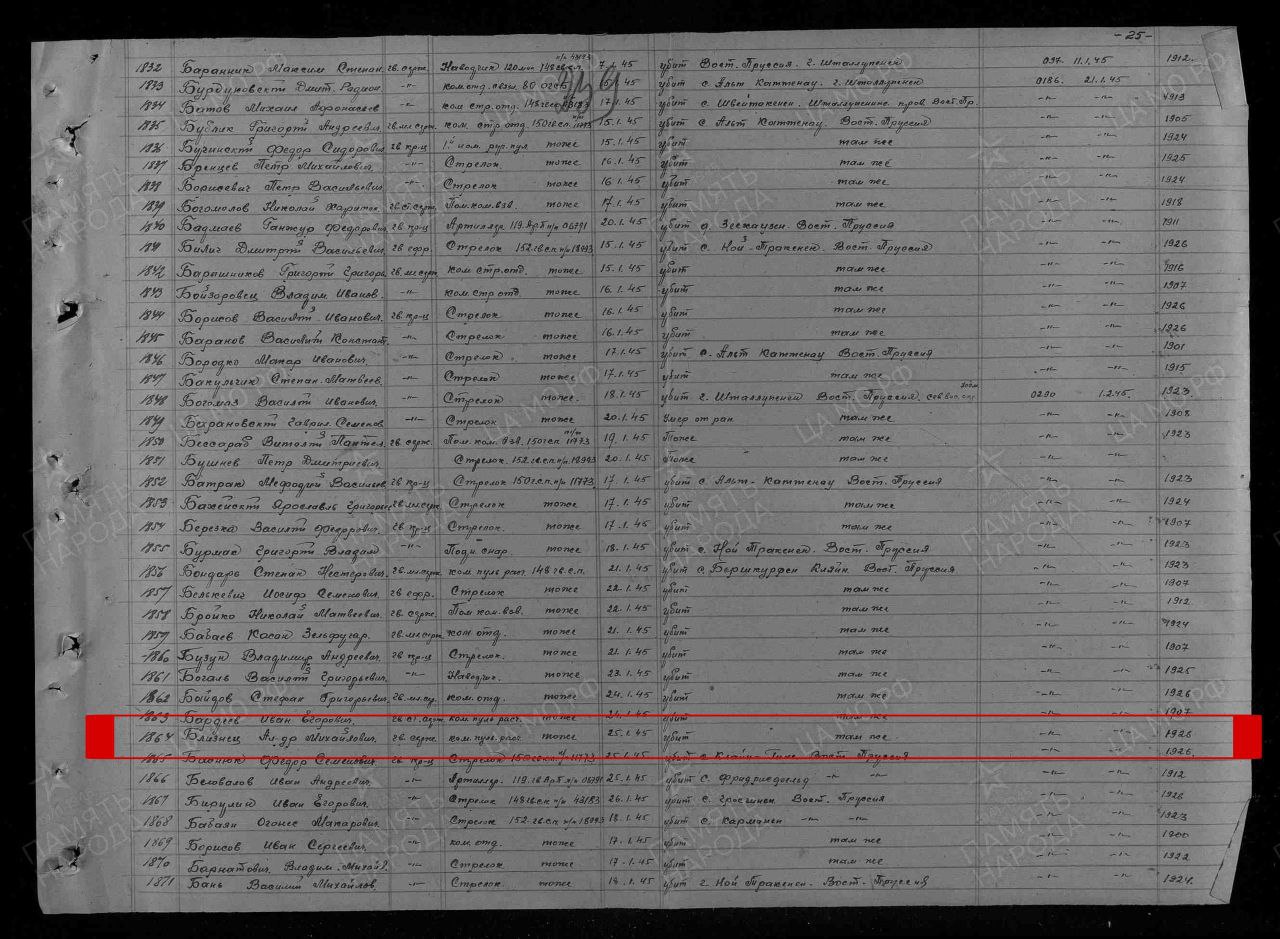 -25-
1832 Баранник Максим Степан. гв. серж. Наводчик 120 мин 148 гв.сп. п/п 43183 7.1.45 убит Вост. Пруссия. г. Шталлупенен 037 11.1.45 1912.
1833 Бурдуковский Дмит. Родион. -"- ком. отд. связи 80 15.1.45 убит с. Альт Каттенау. г. Шталлупенен 0186. 21.1.45
1834 Батов Михаил Афонасьев ком стр. отд. 148 гвсп 43183 17.1.45 убит с. Швейтаксен. Шталлупенине. пров. Вост. Пр. -"- -"- 1913
1835 Бублик Григорий Андреевич гв. мл. серж. ком. стр. отд. 150 гв.сп. 11773 15.1.45 убит с. Альт Каттенау. Вост. Пруссия -"- -"- 1905
1836 Бучинский Федор Сидорович гв. кр-ц тоже 15.1.45 убит там же -"- -"- 1924
1837 Петр Михайлович -"- Стрелок тоже 16.1.45 убит там же -"- -"- 1925
1838 Борисевич Петр Васильевич -"- Стрелок тоже 16.1.45 убит там же -"- -"- 1924
1839 Богомолов Николай Харитон. гв. ст. серж. Пом. ком. взв. тоже 17.1.45 убит там же -"- -"- 1918
1840 Бадмаев Ганжур Федорович гв. кр-ц Артиллер. 119. АрП п/п 06791 20.1.45 убит д. Зеехаузен. Вост. Пруссия -"- -"- 1911
1841 Билич Дмитрий Васильевич гв. ефр. Стрелок 152 гв.сп п/п 18993 15.1.45 убит с. Ной-Тракенен. Вост. Пруссия -"- -"- 1926
1842 Барашников Григорий Григорь. гв. мл. серж. ком. стр. отд. тоже 15.1.45 убит там же -"- -"- 1916
1843 Бойзоровец Владим. Иванов. -"- ком. стр. отд. тоже 16.1.45 убит там же -"- -"- 1907
1844 Борисов Василий Иванович гв. кр-ц Стрелок тоже 16.1.45 убит там же -"- -"- 1926
1845 Баранов Василий Констант. -"- Стрелок тоже 16.1.45 убит там же -"- -"- 1926
1846 Бородко Макар Иванович. -"- Стрелок тоже 17.1.45 убит с. Альт Каттенау Вост. Пруссия -"- -"- 1901
1847 Бакульчик Степан Матвеев. -"- Стрелок тоже 17.1.45 убит там же -"- -"- 1915
1848 Богомаз Василий Иванович. -"- Стрелок тоже 18.1.45 убит г. Шталлупенен Вост. Пруссия. сев вос. окр. 0290 1.2.45. 1923
1849 Бехрановский Гаврил. Семенов -"- Стрелок тоже 20.1.45 Умер от ран там же -"- -"- 1908
1850 Бессараб Виталий Пантел. гв. серж. Пом. ком. взв. 150 гсп п/п 11773 19.1.45 Тоже там же -"- -"- 1923
1851 Бушнев Петр Дмитриевич Стрелок. 152. гв.сп. п/п. 18993 20.1.45 Тоже там же -"- -"-
1852 Батрак Мефодий Васильев гв. кр-ц Стрелок 150 г.сп. п/п 11773. 17.1.45 убит с. Альт-Каттенау Вост. Пруссия -"- -"- 1923
1853 Бажейский Ярославль Григорьев гв. мл. серж. Стрелок тоже 17.1.45 убит там же -"- -"- 1924
1854 Березка Василий Федорович. гв. кр-ц Стрелок. тоже 17.1.45 убит там же -"- -"- 1907
1855 Бурмас Григорий Владим. -"- Подн. снар. тоже 18.1.45 убит с. Ной Тракенен. Вост. Пруссия -"- -"- 1923
1856 Бондарь Степан Нестерович. гв. мл. серж. ком. пуль. расч. 148 гв.с.п. 21.1.45 убит с. Бершкурфен Кляйн. Вост. Пруссия -"- -"- 1923
1857 Белькевич Иосиф Семенович. гв. ефр. Стрелок тоже 22.1.45 убит там же -"- -"- 1907
1858 Бройко Николай Матвеевич. гв. серж. Пом. ком. взв. тоже 22.1.45 убит там же -"- -"- 1912
1859 Бабаев Касан Зельфугар. гв. мл. серж. ком отд. тоже 21.1.45 убит там же -"- -"- 1924
1860 Бузун Владимир Андреевич. гв. кр-ц Стрелок. тоже 21.1.45 убит там же -"- -"- 1907
1861 Богаль Василий Григорьевич. -"- Наводч. тоже 23.1.45 убит там же -"- -"- 1925
1862 Байдов Стефан Григорьевич. гв. мл. сер. ком. отд. тоже 24.1.45 убит там же -"- -"- 1926
1863 Бардеев Иван Егорович. гв. ст. серж. ком. пуль расч. тоже 24.1.45 убит там же -"- -"- 1907
1864 Близнец Ал-др Михайлович. гв. серж. ком. пуль. расч. тоже 25.1.45 убит там же -"- -"- 1926
1865 Федор Семенович. гв. кр-ц Стрелок 150 гв.сп. п/п 11773 25.1.45 убит Вост. Пруссия -"- -"- 1926
1866 Беловалов Иван Андреевич. -"- Артиллер. 119. гв АрП п/п 06791 25.1.45 убит с. Фридриедфельд -"- -"- -"- -"- 1912
1867 Бирулин Иван Егорович. -"- Стрелок 148 гв.сп п/п 43183 26.1.45 убит Вост. Пруссия -"- -"- 1926
1868 Бабаян Оганес Макарович. -"- Стрелок 152-гв.сп п/п 18993 18.1.45 убит с. Карманен -"- -"- -"- -"- 1923
1869 Борисов Иван Сергеевич. -"- ком. отд. тоже 17.1.45 убит там же -"- -"- 1900
1870 Барнатович Владим. Михай. -"- Стрелок тоже 17.1.45 убит там же -"- -"- 1922
1871 Бань Василий Михайлов -"- Стрелок. тоже 18.1.45 убит г. Ной Тракенен. Вост. Пруссия -"- -"- 1924.